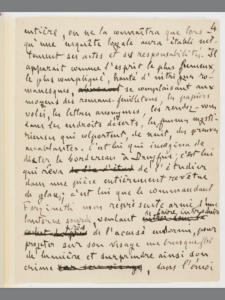 4
entière, on ne la connaîtra que lors
qu'une enquête loyale aura établi net-
tement ses actes et ses responsabilités. Il
apparaît comme l'esprit le plus fumeux,
le plus compliqué, hanté d'intrigues ro-
manesques, se complaisant aux
moyens des romans-feuilletons, les papiers
volés, les lettres anonymes, les rendez-vous
dans les endroits déserts, les femmes mysté-
rieuses qui colportent, de nuit, des preuves
accablantes. C'est lui qui imagina de
dicter le bordereau à Dreyfus; c'est lui
qui rêva de l'étudier
dans une pièce entièrement revêtue
de glace; c'est lui que le commandant
Forzinetti nous représente armé d'une
lanterne sourde, voulant se faire introduire
près de l'accusé endormi, pour
projeter sur son visage un brusque flot
de lumière et surprendre ainsi son
crime, dans l'émoi